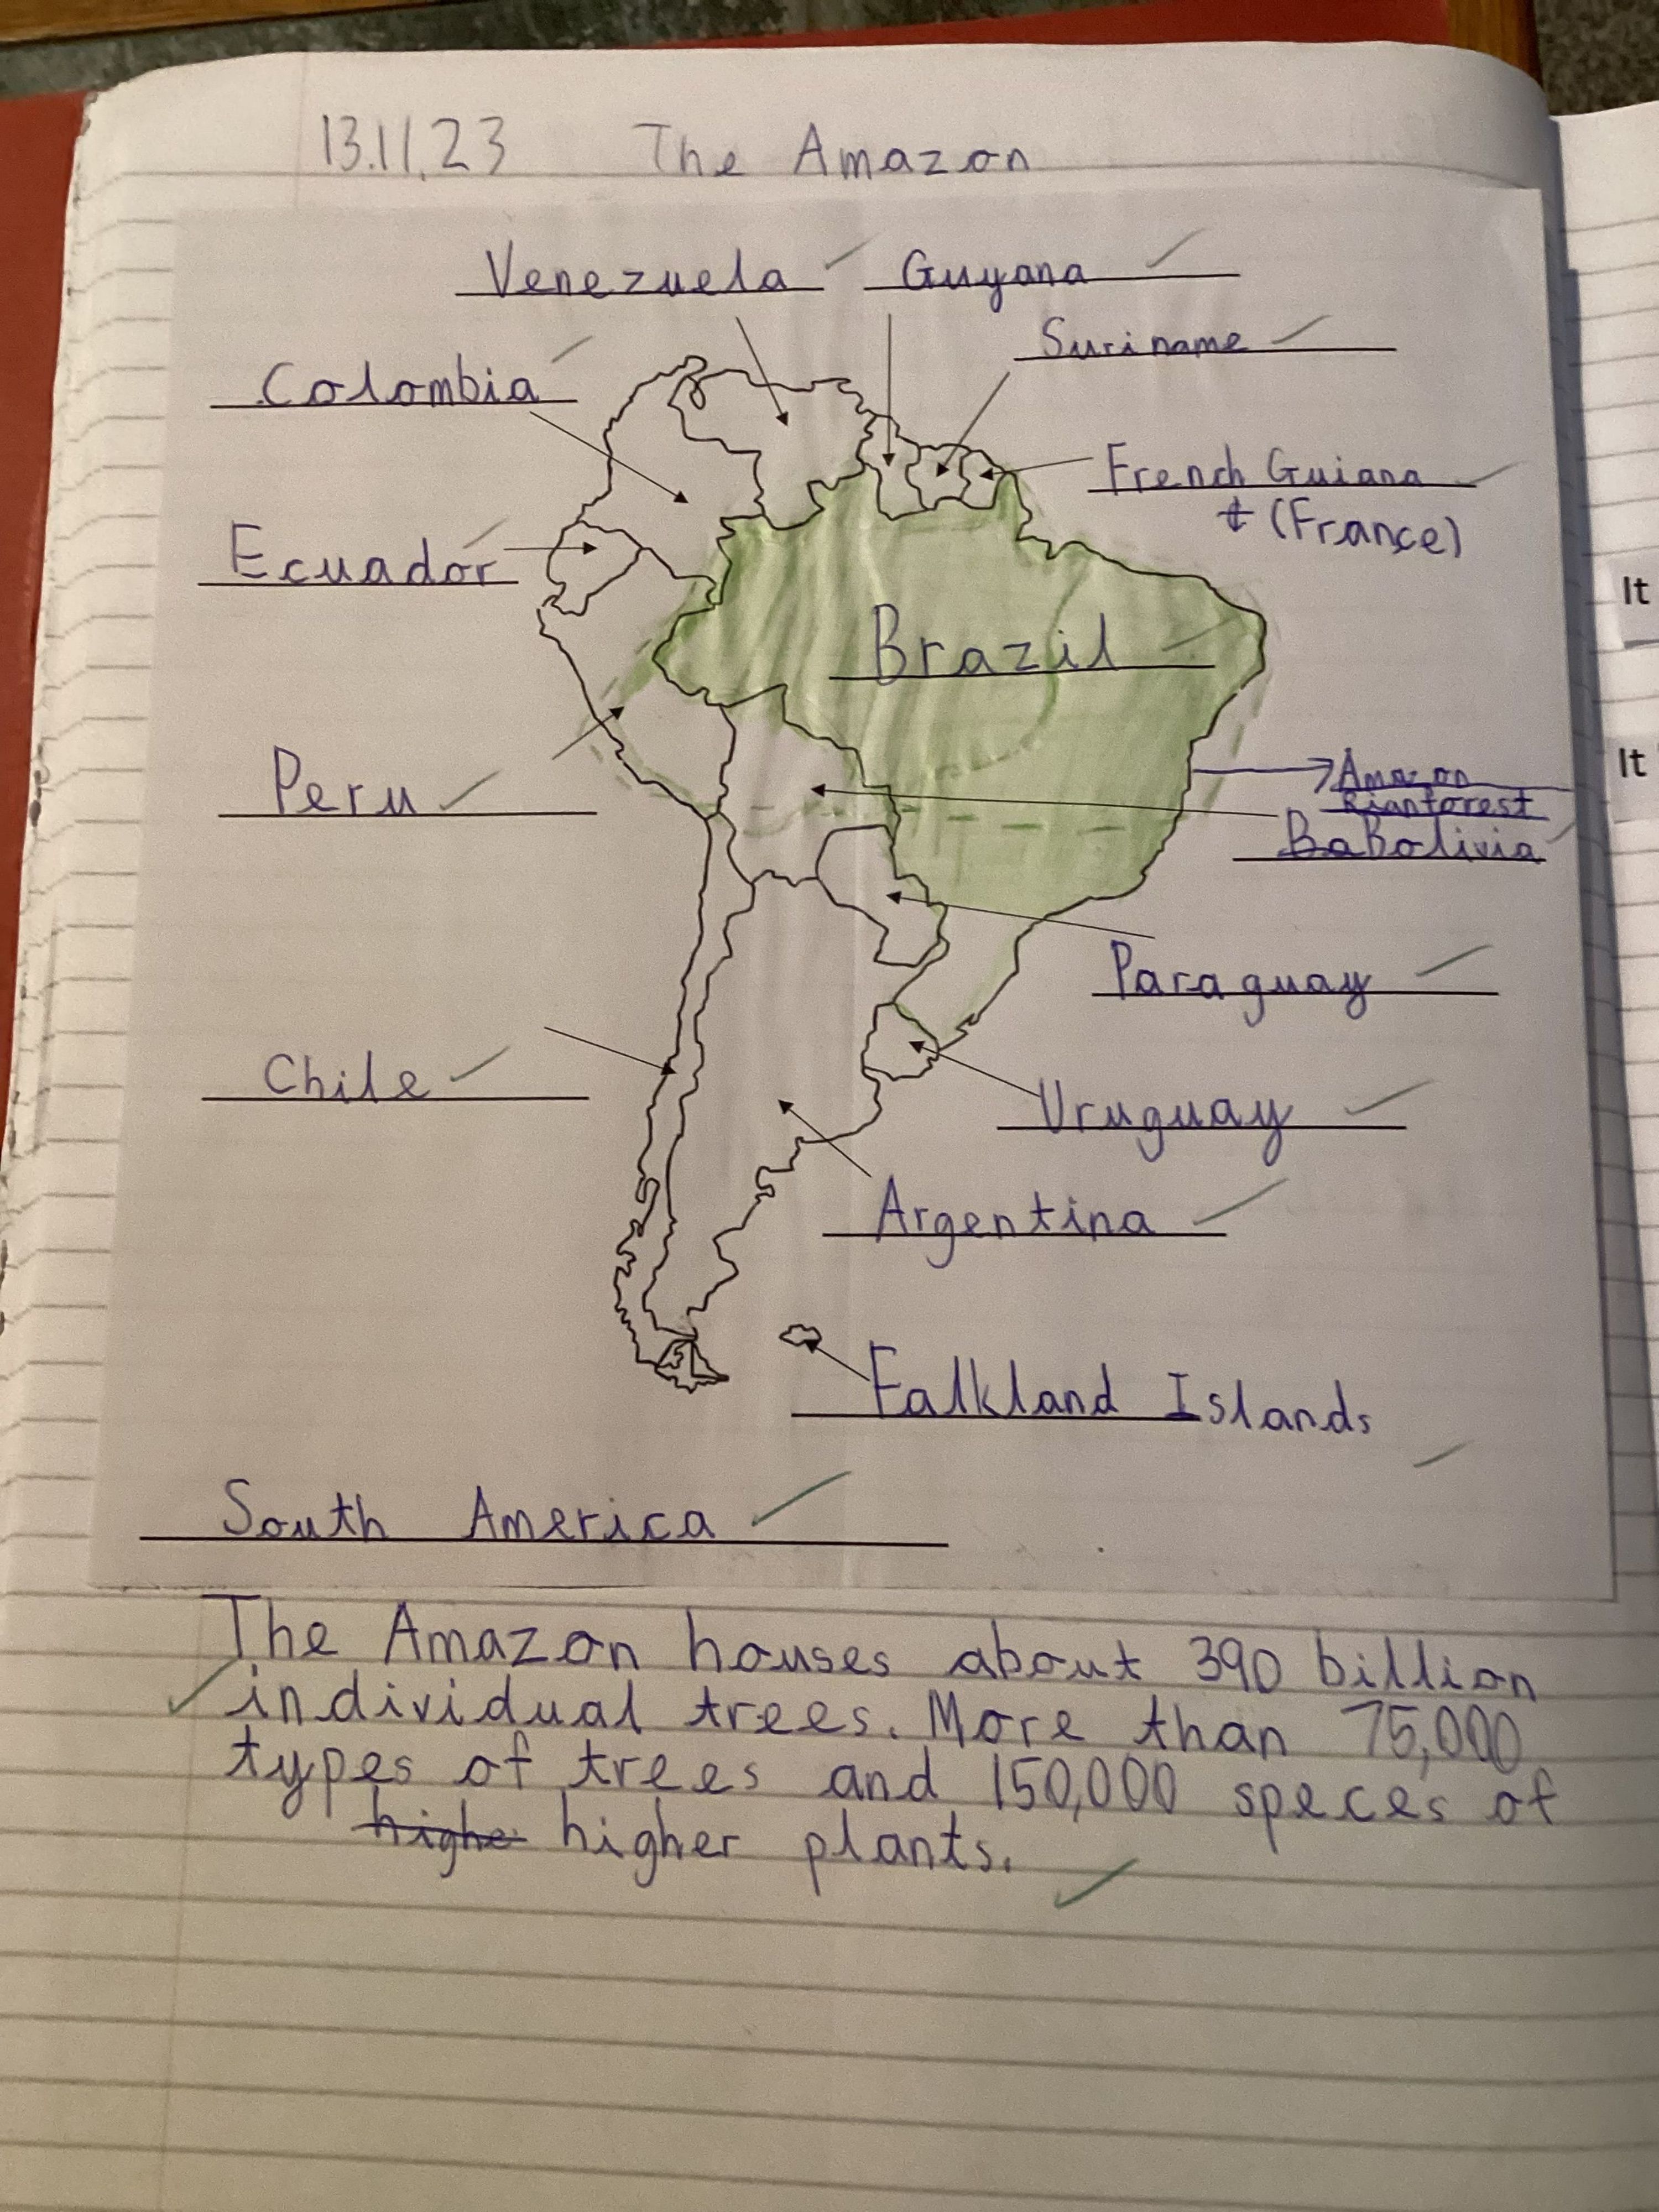 13.11.23 The Amazon
Venezuela Guyana
Suriname
Colombia
French Guiana
(France)
Ecuador
Brazil
It
Peru
It
Amazon
Rianforest
Ba Bolivia
Paraguay
Chile
Uruguay
Argentina
Falkland Islands
South America
The Amazon houses about 390 billion
individual trees. More than 75,000
types of trees and 150,000 speces of
highe higher plants.